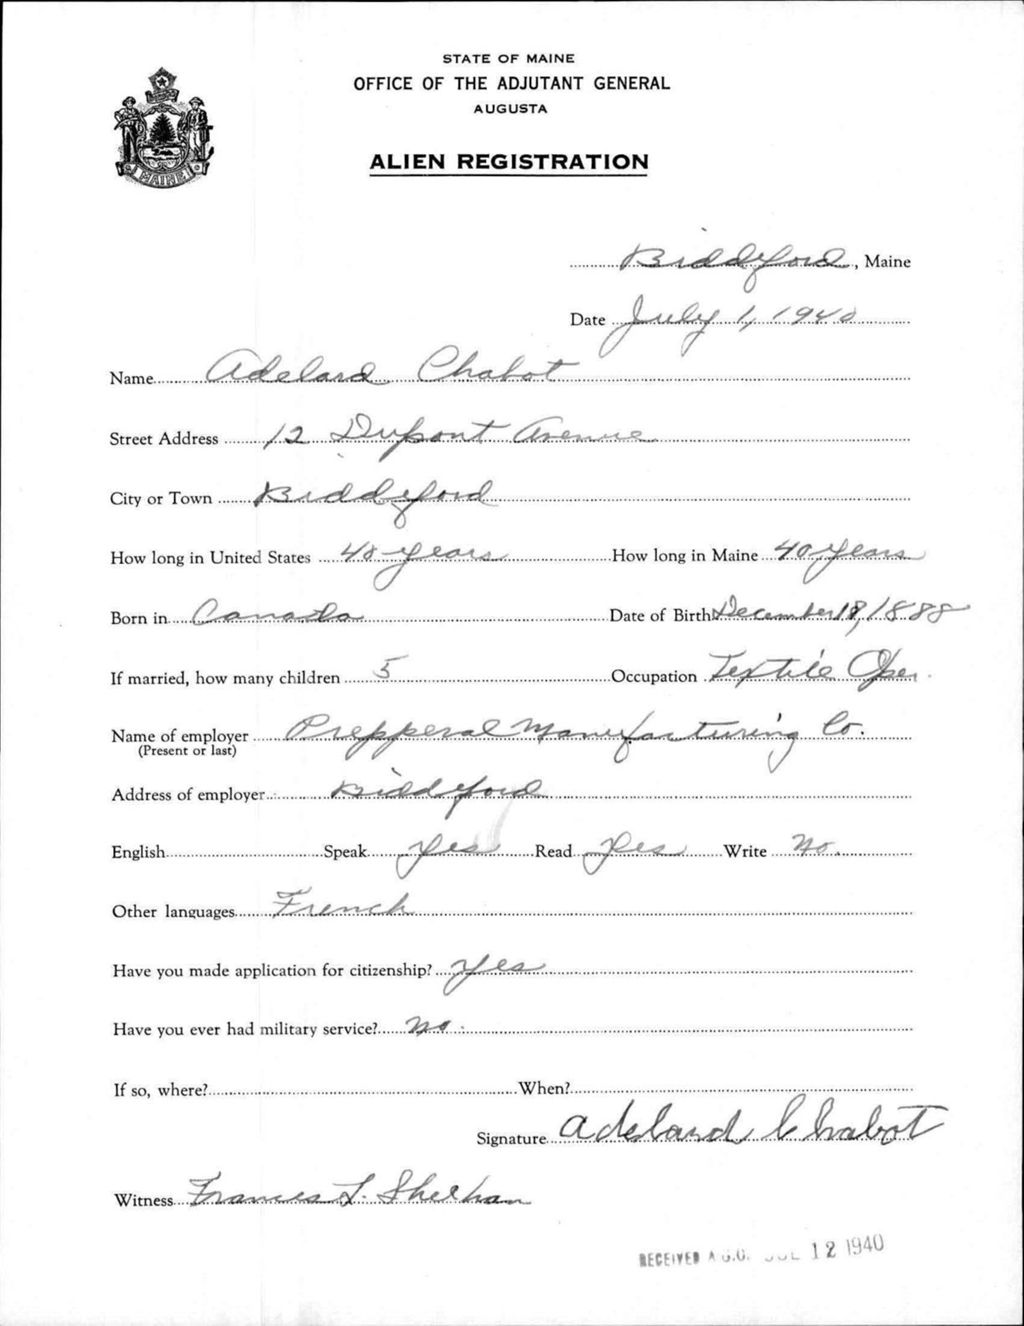 STATE OF MAINE
OFFICE OF THE ADJUTANT GENERAL
AUGUSTA
ALIEN REGISTRATION
MAINE
Biddeford, Maine
Date July 1, 1940
Name Adelard Chabot
Street Address 12 Dupont Avenue
City or Town Biddeford
How long in United States 40 years How long in Maine 40 years
Born in Canada Date of Birth December 18, 1888
If married, how many children 5 Occupation Textile Oper.
Name of employer Prepperal Manufacturing Co.
(Present or last)
Address of employer Biddeford
English Speak Yes Read Yes Write No.
Other languages French
Have you made application for citizenship? Yes
Have you ever had military service? No.
If so, where? When?
Signature Adelard Chabot
Witness Frances L. Shelhan
RECEIVED A.G.O. JUL 12 1940